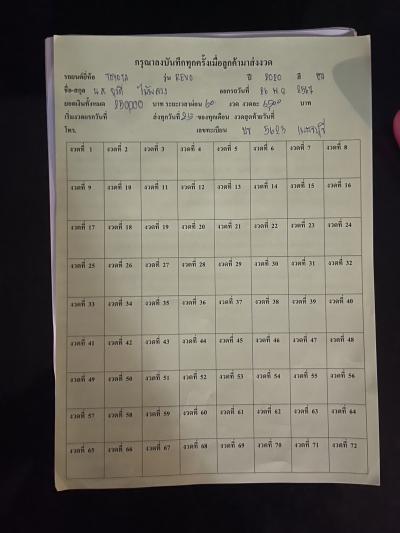 กรุณาลงบันทึกทุกครั้งเมื่อลูกค้ามาส่งงวด
รถยนต์ยี่ห้อ TOYOTA รุ่น REVO ปี 2020 สี
ชื่อ-สกุล น.ส. ออกรถวันที่ 26 พ.ย 2567
ยอดเงินทั้งหมด 250,000 บาท ระยะเวลาผ่อน 60 งวด งวดละ 6,500 บาท
เริ่มงวดแรกวันที่ ส่งทุกวันที่ 26 ของทุกเดือน งวดสุดท้ายวันที่
โทร. เลขทะเบียน 5623 เพชรบุรี
งวดที่ 1 งวดที่ 2 งวดที่ 3 งวดที่ 4 งวดที่ 5 งวดที่ 6 งวดที่ 7 งวดที่ 8
งวดที่ 9 งวดที่ 10 งวดที่ 11 งวดที่ 12 งวดที่ 13 งวดที่ 14 งวดที่ 15 งวดที่ 16
งวดที่ 17 งวดที่ 18 งวดที่ 19 งวดที่ 20 งวดที่ 21 งวดที่ 22 งวดที่ 23 งวดที่ 24
งวดที่ 25 งวดที่ 26 งวดที่ 27 งวดที่ 28 งวดที่ 29 งวดที่ 30 งวดที่ 31 งวดที่ 32
งวดที่ 33 งวดที่ 34 งวดที่ 35 งวดที่ 36 งวดที่ 37 งวดที่ 38 งวดที่ 39 งวดที่ 40
งวดที่ 41 งวดที่ 42 งวดที่ 43 งวดที่ 44 งวดที่ 45 งวดที่ 46 งวดที่ 47 งวดที่ 48
งวดที่ 49 งวดที่ 50 งวดที่ 51 งวดที่ 52 งวดที่ 53 งวดที่ 54 งวดที่ 55 งวดที่ 56
งวดที่ 57 งวดที่ 58 งวดที่ 59 งวดที่ 60 งวดที่ 61 งวดที่ 62 งวดที่ 63 งวดที่ 64
งวดที่ 65 งวดที่ 66 งวดที่ 67 งวดที่ 68 งวดที่ 69 งวดที่ 70 งวดที่ 71 งวดที่ 72